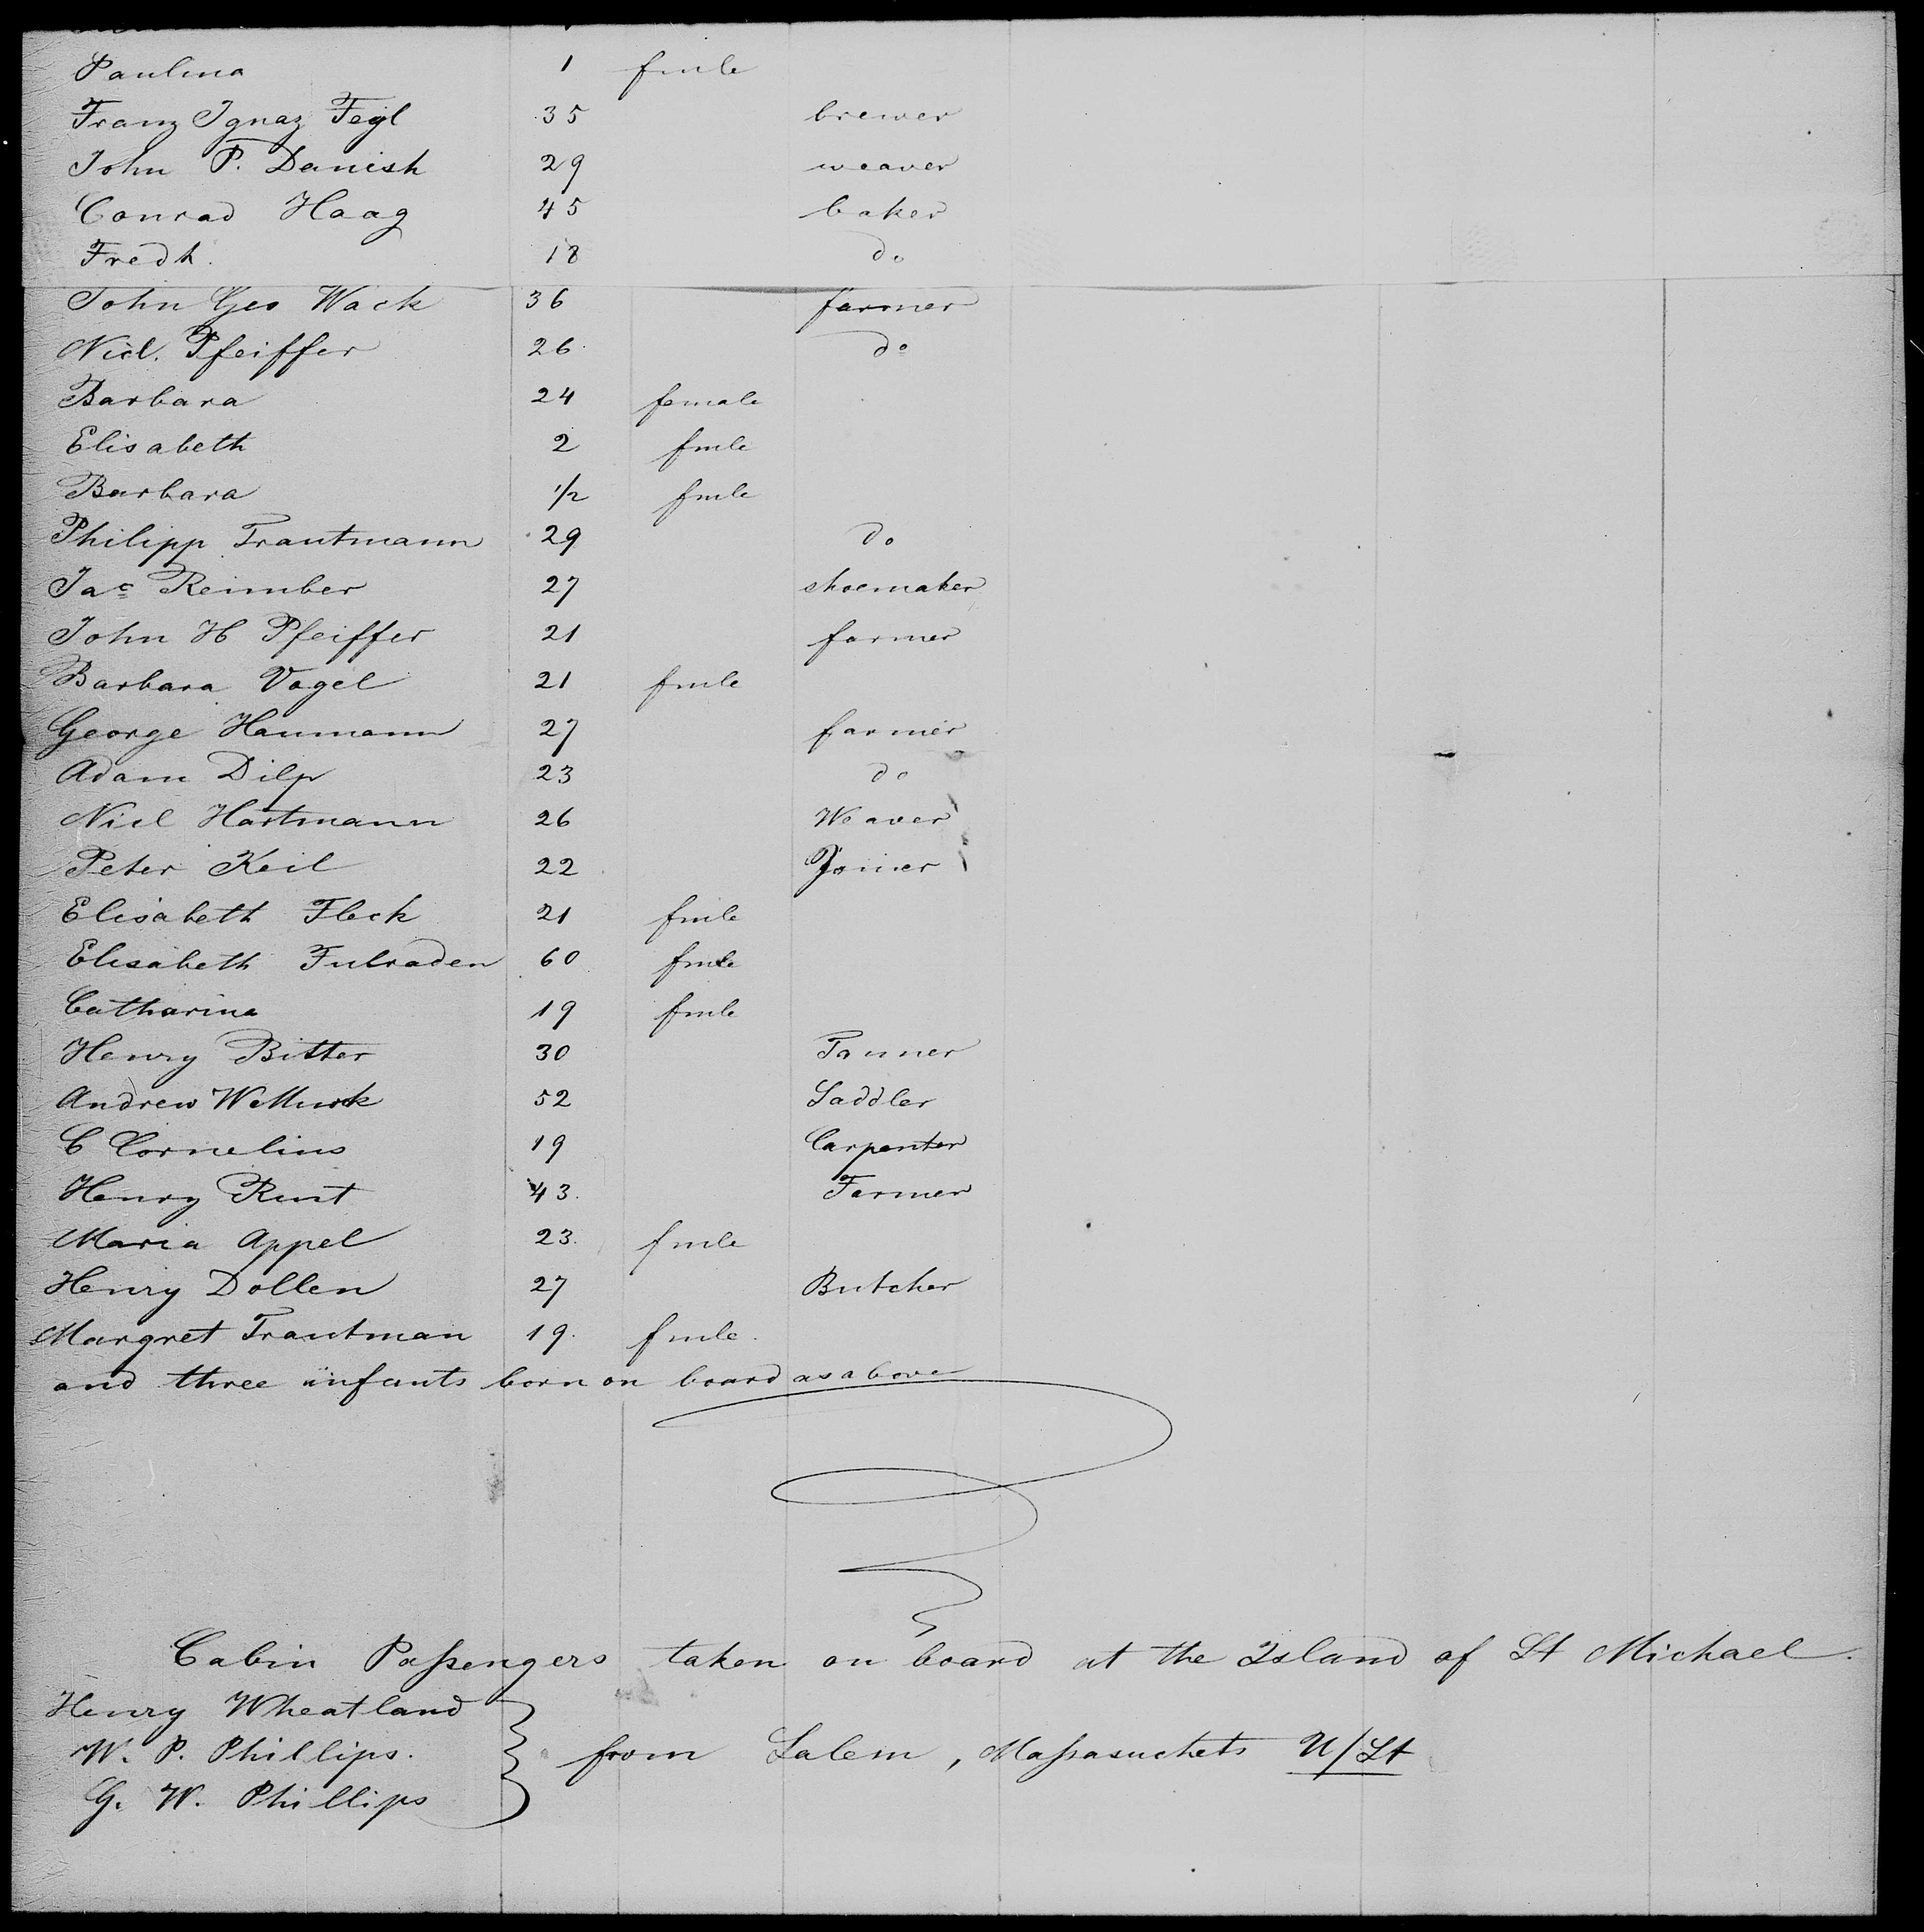 Paulina 1 fmle
Franz Ignaz Feigl 35 brewer
John P. Danish 29 weaver
Conrad Haag 45 baker
Fredk. 18 do
John Geo Wack 36 farmer
Nicl. Pfeiffer 26 do
Barbara 24 female
Elisabeth 2 fmle
Barbara 1/2 fmle
Philipp Trautmann 29 do
Jac Reimber 27 shoemaker
John H Pfeiffer 21 farmer
Barbara Vogel 21 fmle
George Haumann 27 farmer
Adam Dilp 23 do
Nicl Hartmann 26 Weaver
Peter Keil 22 Joiner
Elisabeth Fleck 21 fmle
Elisabeth Fulraden 60 fmle
Catharina 19 fmle
Henry Bitter 30 Tanner
Andrew 52 Saddler
C Cornelius 19 Carpenter
Henry Runt 43. Farmer
Maria Appel 23. fmle
Henry Dollen 27 Butcher
Margret Trautman 19. fmle.
and three infants born on board as above
Cabin Passengers taken on board at the Island of St Michael.
Henry Wheatland
W. P. Phillips. from Salem, Massasuchets U/St
G. W. Phillips